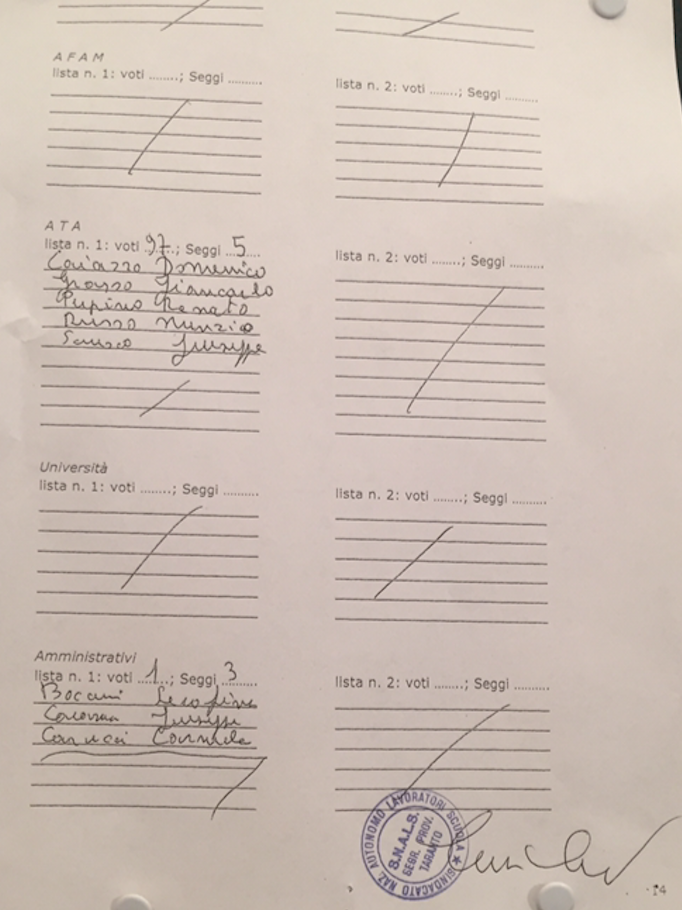 AFAM
lista n. 1: voti ........; Seggi ..........
lista n. 2: voti ........; Seggi ..........
ATA
lista n. 1: voti 97; Seggi 5
lista n. 2: voti ........; Seggi ..........
Caiazzo Domenico
Grosso Giancarlo
Pupino Renato
Russo Nunzio
Giuseppe
Università
lista n. 1: voti ........; Seggi ..........
lista n. 2: voti ........; Seggi ..........
Amministrativi
lista n. 1: voti 1; Seggi 3
lista n. 2: voti ........; Seggi ..........
Giuseppe
Carucci
SINDACATO NAZ. AUTONOMO LAVORATORI SCUOLA
S.N.A.L.S.
SEGR. PROV.
TARANTO
14